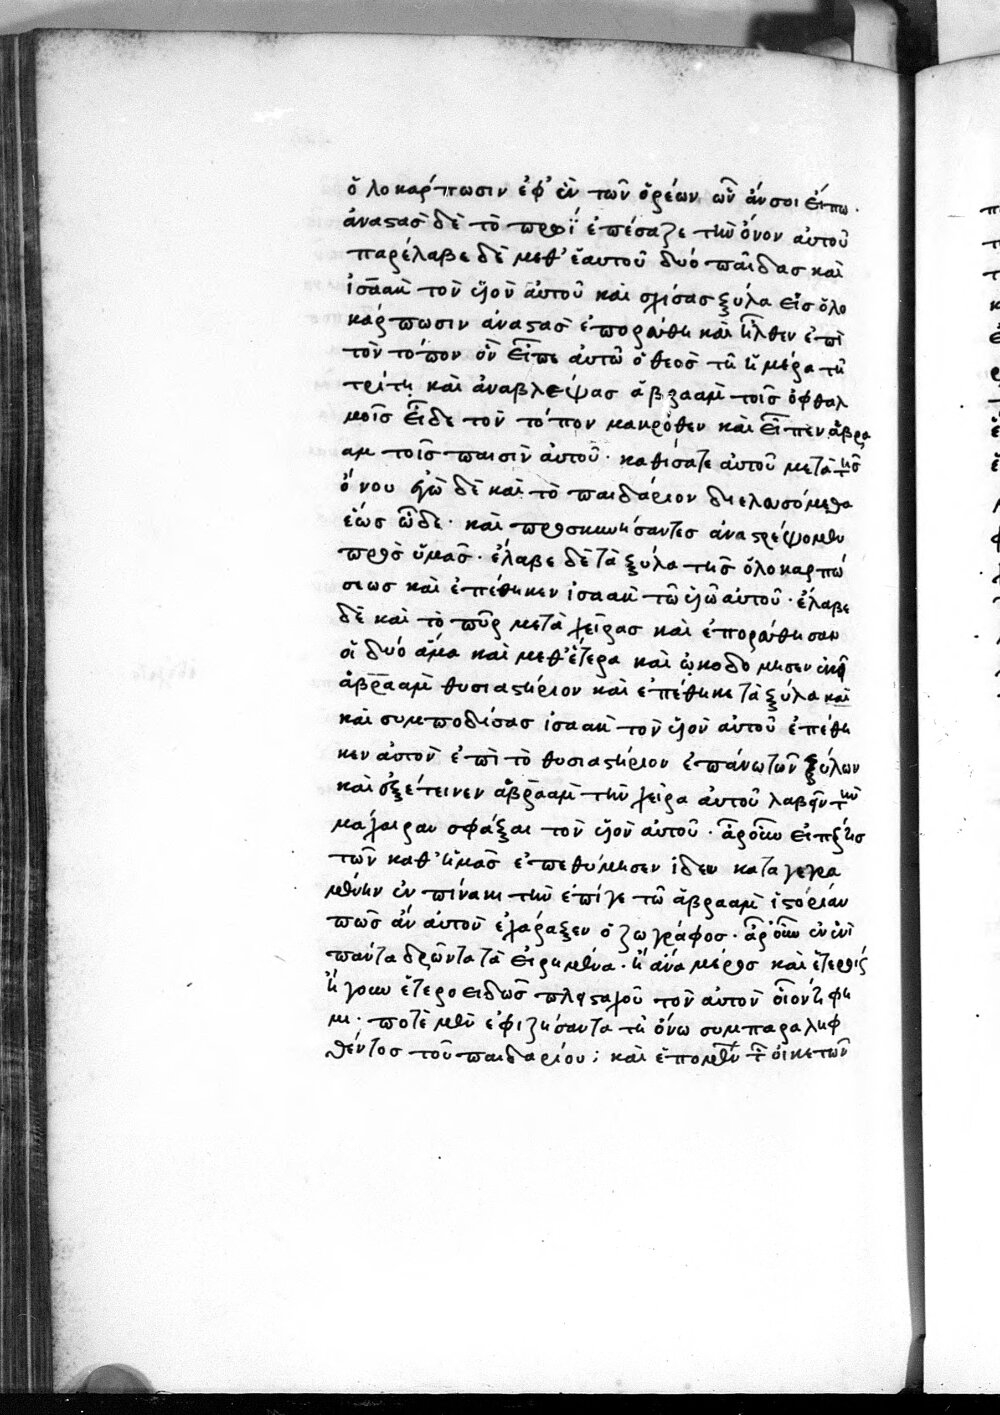 ὁλοκάρπωσιν ἐφ' ἓν τῶν ὀρέων ὧν ἄν σοι εἴπω·
ἀναστὰς δὲ τὸ πρωῒ ἐπέσαξε τὴν ὄνον αὐτοῦ
παρέλαβε δὲ μεθ' ἑαυτοῦ δύο παῖδας καὶ
ἰσαὰκ τὸν υἱὸν αὐτοῦ καὶ σχίσας ξύλα εἰς ὁλο
κάρπωσιν ἀναστὰς ἐπορεύθη καὶ ἦλθεν ἐπὶ
τὸν τόπον ὃν εἶπε αὐτῶ ὁ θεὸς τῆ ἡμέρα τῆ
τρίτη καὶ ἀναβλέψας ἁβραὰμ τοῖς ὀφθαλ
μοῖς εἶδε τὸν τόπον μακρόθεν καὶ εἶπεν ἁβρα
ὰμ τοῖς παισὶν αὐτοῦ· καθίσατε αὐτοῦ μετὰ τῆς
ὄνου ἐγὼ δὲ καὶ τὸ παιδάριον διελευσόμεθα
ἕως ὧδε· καὶ προσκυνήσαντες ἀναστρέψομεν
πρὸς ὑμᾶς· ἔλαβε δὲ τὰ ξύλα τῆς ὁλοκαρπώ
σεως καὶ ἐπέθηκεν ἰσαὰκ τῶ υἱῶ αὐτοῦ· ἔλαβε
δὲ καὶ τὸ πῦρ μετὰ χεῖρας καὶ ἐπορεύθησαν
οἱ δύο ἅμα καὶ μεθ' ἕτερα καὶ ὠκοδόμησεν ἐκεῖ
ἁβραὰμ θυσιαστήριον καὶ ἐπέθηκε τὰ ξύλα καὶ
καὶ συμποδίσας ἰσαὰκ τὸν υἱὸν αὐτοῦ ἐπέθη
κεν αὐτὸν ἐπὶ τὸ θυσιαστήριον ἐπάνω τῶν ξύλων
καὶ ἐξέτεινεν ἁβραὰμ τὴν χεῖρα αὐτοῦ λαβεῖν τὴν
μάχαιραν σφάξαι τὸν υἱὸν αὐτοῦ· ἆρ' οὖν εἴπερ τις
τῶν καθ' ἡμᾶς ἐπεθύμησεν ἰδεῖν καταγεγρα
μένην ἐν πίνακι τὴν ἐπί γε τῶ ἁβραὰμ ἱστορίαν
πῶς ἂν αὐτὸν ἐχάραξεν ὁ ζωγράφος· ἆρ' οὖν ἐν ἑνὶ
πάντα δρῶντα τὰ εἰρημένα· ἢ ἀνὰ μέρος καὶ ἑτέρως
ἤγουν ἑτεροειδῶς πλησταχοῦ τὸν αὐτὸν οἷόν τι φη
μι· ποτὲ μὲν ἐφιζήσαντα τῆ ὄνω συμπαραληφ
θέντος τοῦ παιδαρίου; καὶ ἑπομένων τῶν οἰκετῶν